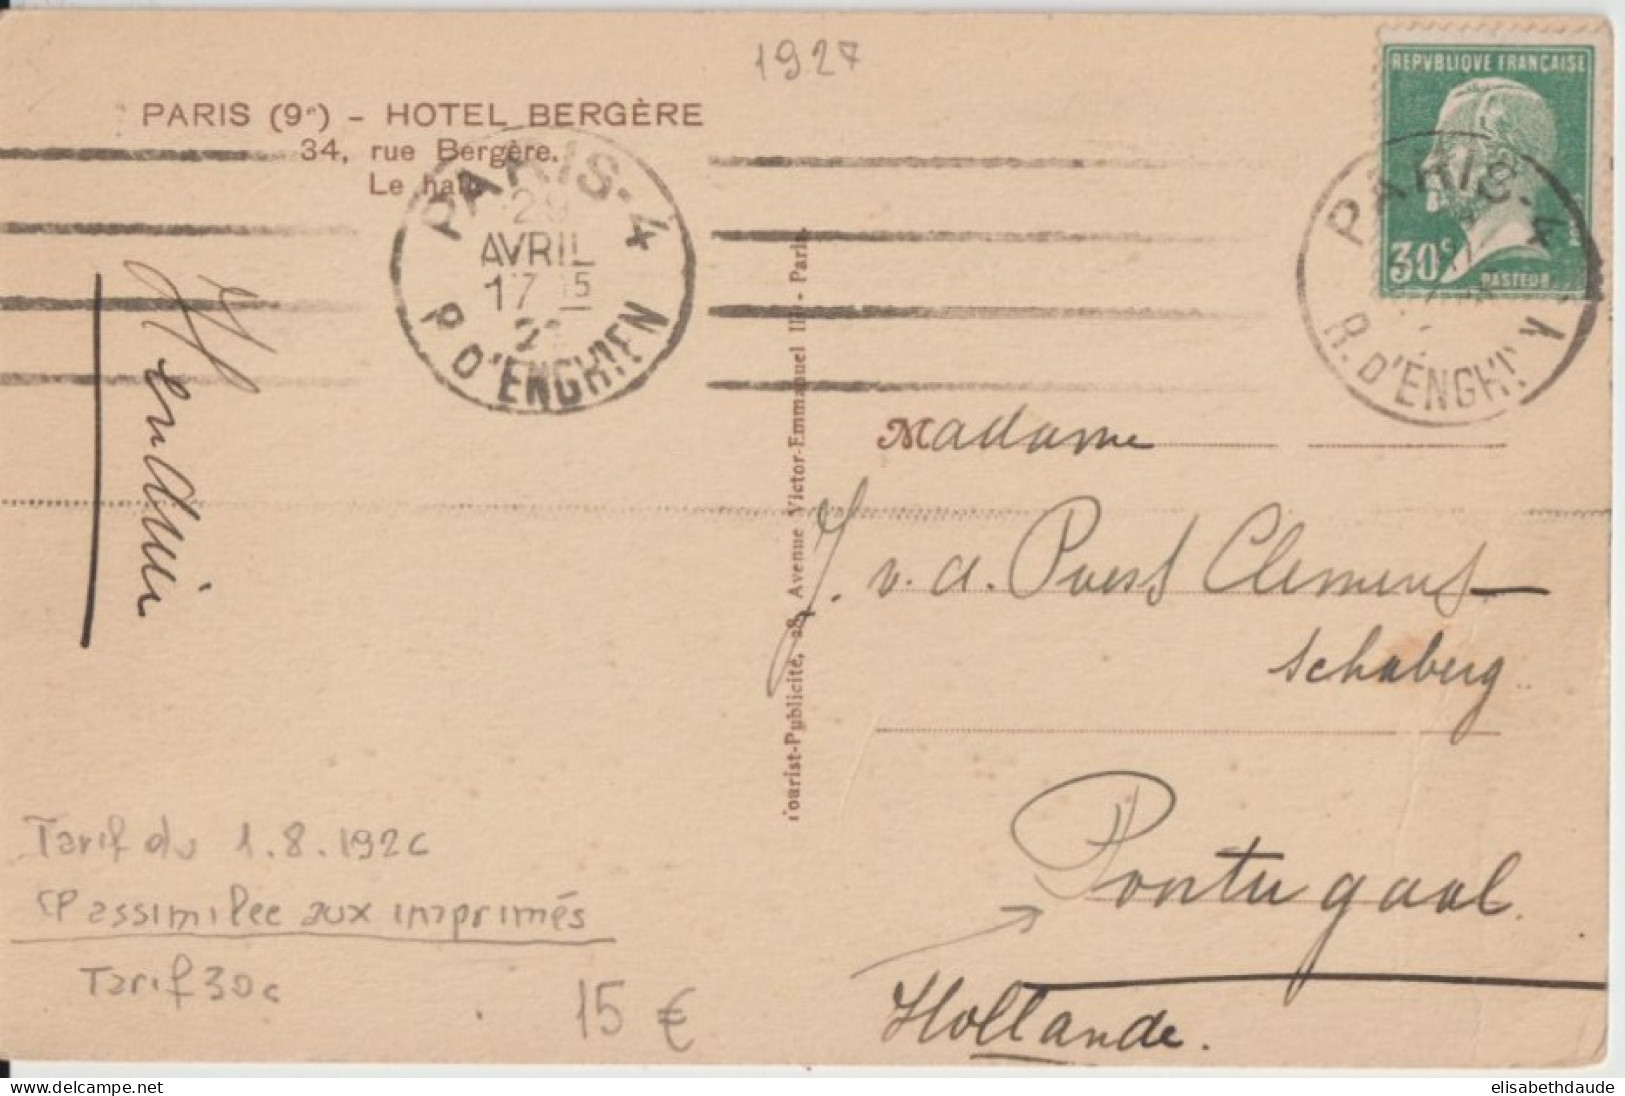 1927
PARIS (9e) - HOTEL BERGÈRE
34, rue Bergère.
Le hall
REPVBLIQVE FRANÇAISE
30c
PASTEUR
PARIS-4
29
AVRIL
17 15
R. D'ENGHIEN
PARIS-4
R. D'ENGHIEN
Tourist-Publicité, 28, Avenue Victor-Emmanuel III - Paris.
Madame
J. v. d. Poest Clement-
Schaberg
Portugaal.
Hollande.
Tarif du 1.8.1926
CP assimilee aux imprimés
Tarif 30c
15 €
elisabethdaude